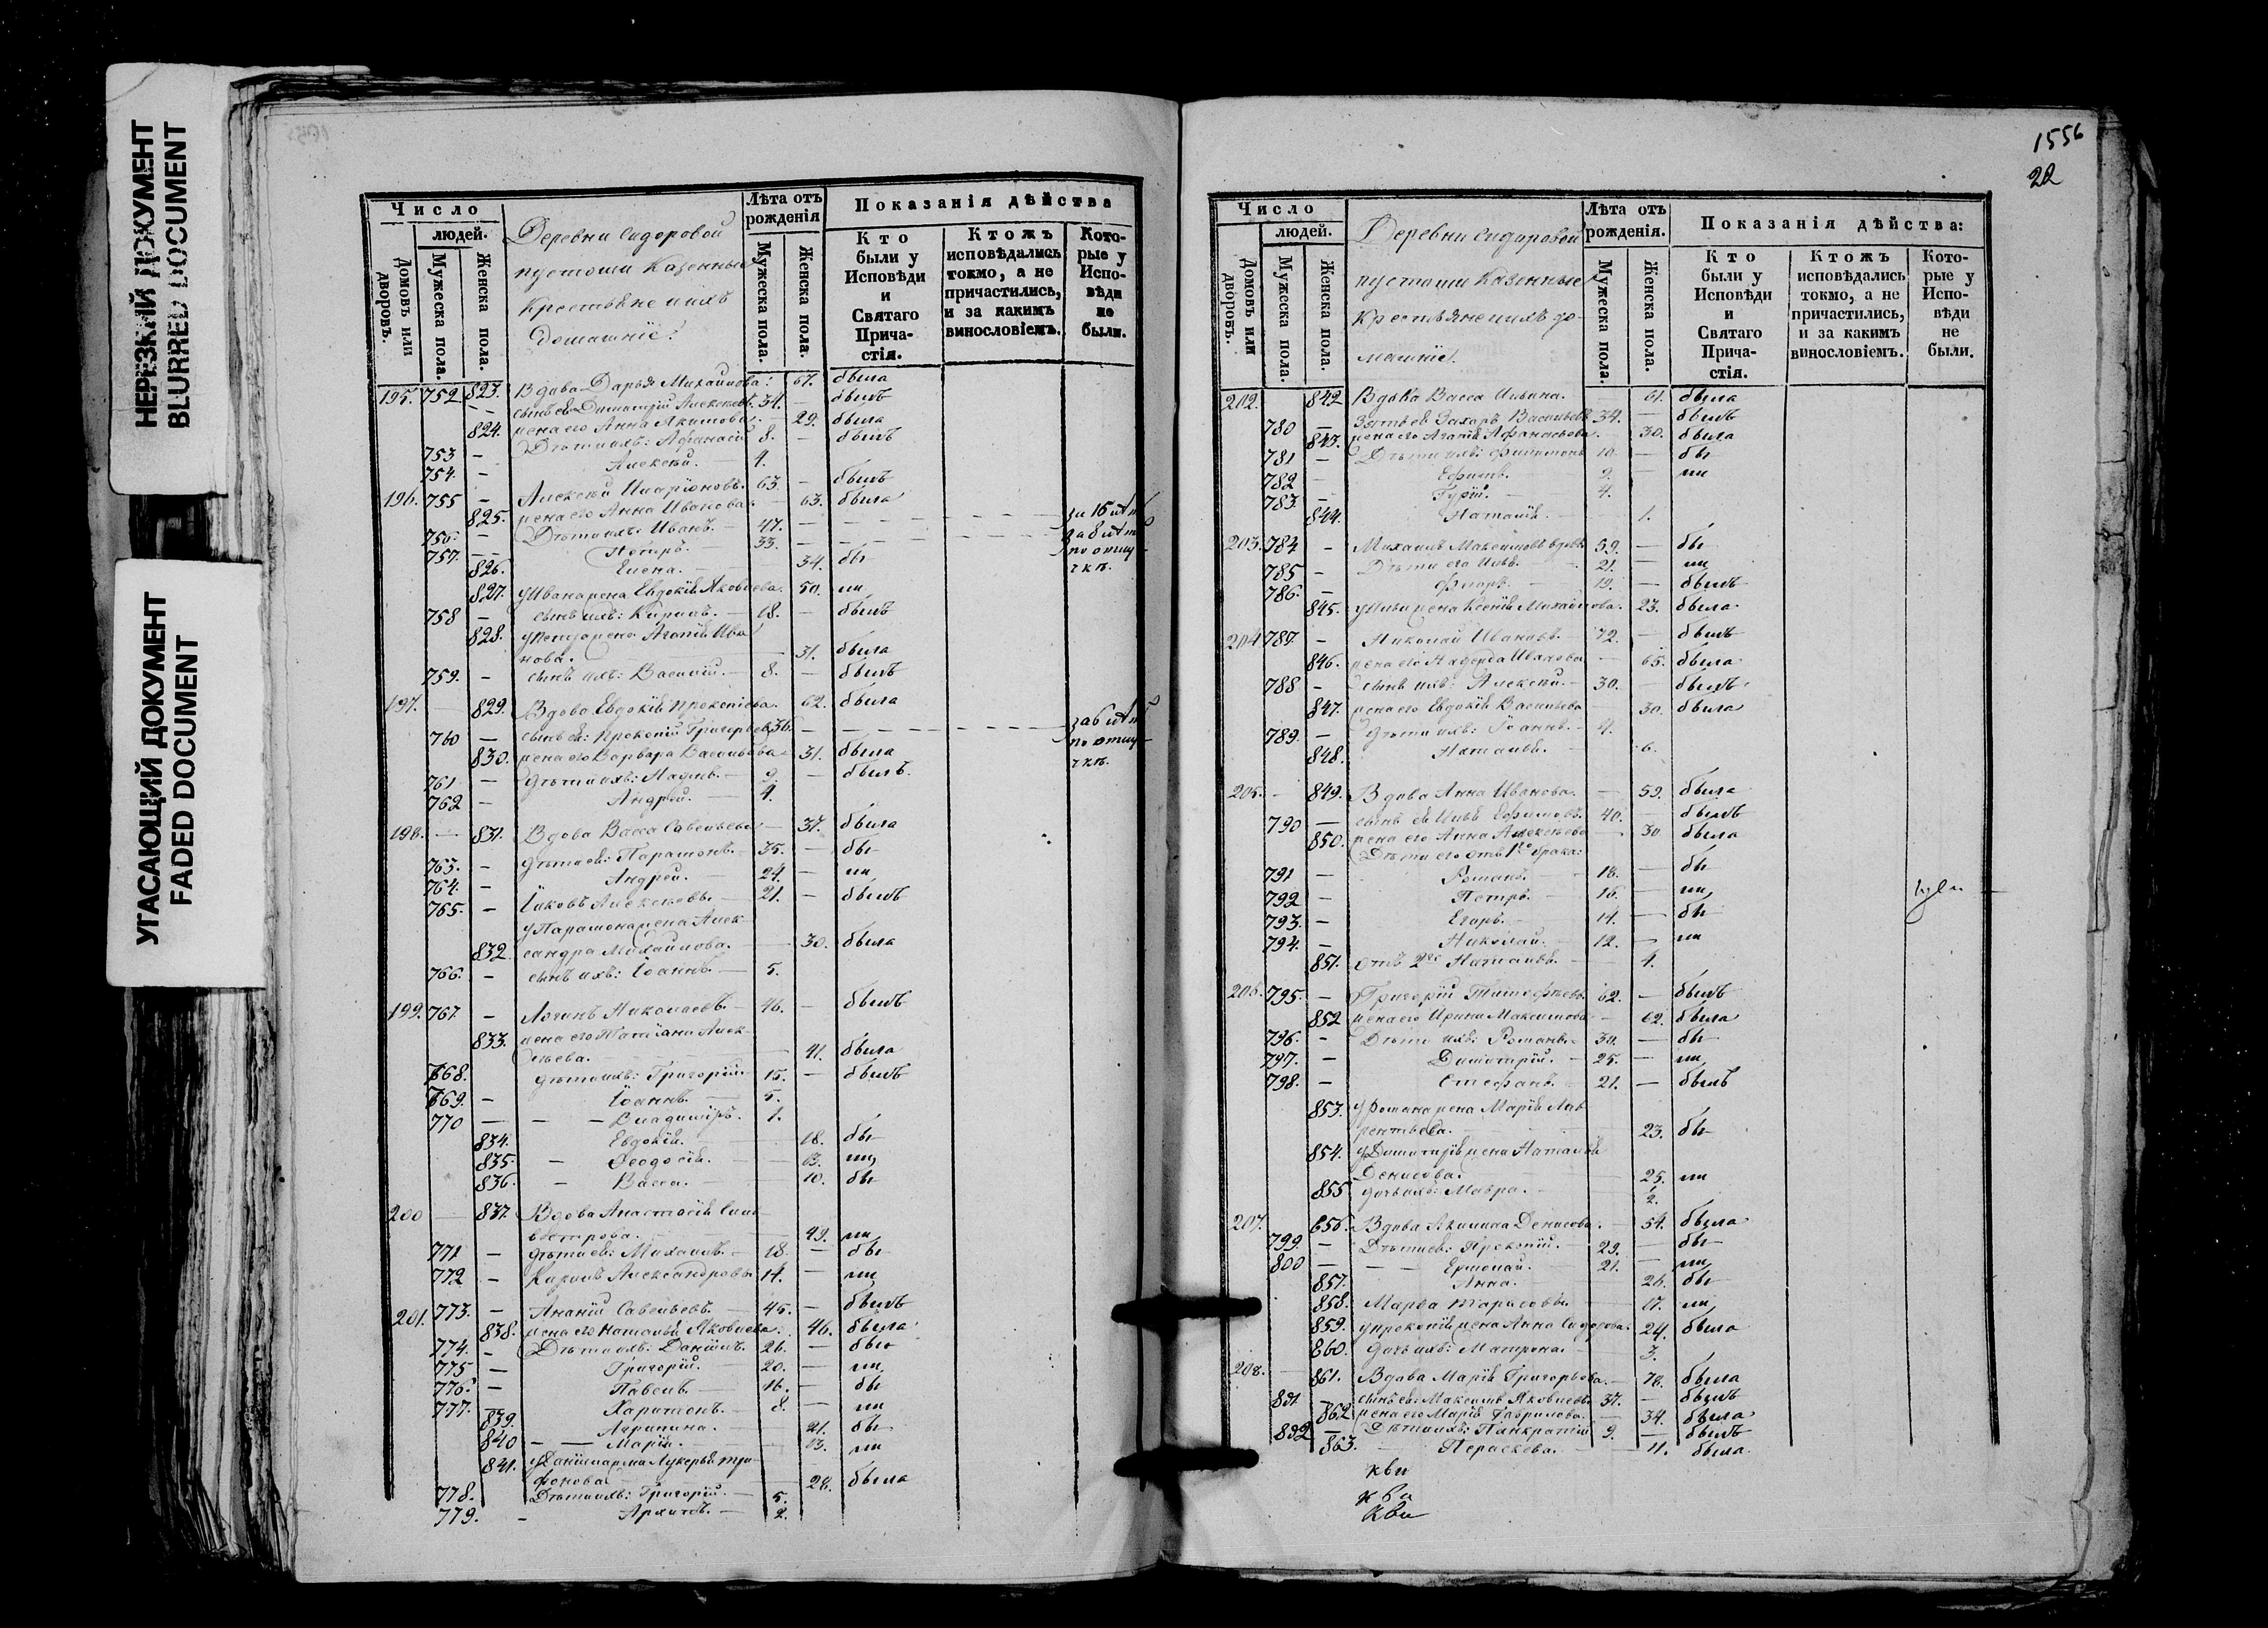 НЕРЕЗКИЙ ДОКУМЕНТ
BLURRED DOCUMENT
УГАСАЮЩИЙ ДОКУМЕНТ
FADED DOCUMENT
Число
людей.
Домовъ или дворовъ.
Мужеска пола.
Женска пола.
Деревни Сидоровой
пустоши Казенные
Крестьяне и ихъ
Домашніе.
Лѣта отъ рожденія
Мужеска пола.
Женска пола.
Показанія дѣйства
Кто были у Исповѣди и Святаго Причастія.
Ктожъ исповѣдались токмо, а не причастились, и за какимъ винословіемъ.
Которые у Исповѣди не были.
195. 752 823. Вдова Дарья Михайлова: 67. была
сынъ ея Димитрій Алексѣевъ. 34. — былъ
824. жена его Анна Якимова. 29. была
753 — Дѣти ихъ: Афанасій 8. — былъ
754. — Алексѣй. — 4.
196. 755 — Алексѣй Иларіоновъ. 63. — былъ
825. жена его Анна Иванова. 63. была
756. — Дѣти ихъ: Иванъ. — 47. —
757. — Петръ. — 33. —
по отлу-
чкѣ.
826. Елена. — 34. бы-
827. у Ивана жена Евдокія Яковлева. 50. ли
758 — сынъ ихъ: Кирилъ. — 18. — былъ
828. у Петра жена Агапія Ива-
нова. — 31. была
759. — сынъ ихъ: Василій. — 8. — былъ
197. 829. Вдова Евдокія Прокопіева. 62. была
760 — сынъ ея: Прокопій Григорьевъ 36. — за 6 лѣтъ
по отлу-
чкѣ.
830. жена его Варвара Васильева 31. была
761 — дѣти ихъ: 9. — былъ.
762 — Андрей. — 4.
198. — 831. Вдова Васса Савельева — 37. была
763. — дѣти ея: Парамонъ. — 35. — бы-
764. — Андрей. — 24. — ли
765. — Іаковъ Алексѣевы. — 21. — былъ
у Парамона жена Алек-
832. сандра Михайлова. — 30. была
766. — сынъ ихъ: Іоаннъ. — 5.
199. 767. — Логинъ Николаевъ. — 46. — былъ
833. жена его Татіана Алек-
сѣева. — 41. была
768. дѣти ихъ: Григорій — 15. — былъ
769. — Іоаннъ. — 5.
770 — Владиміръ. — 1.
834. Евдокія. — 18. бы-
835. — Ѳеодосія. — 13. ли
836. — Васса. — 10. бы-
200 — 837. Вдова Анастасія Силь-
вестрова. — 49. ли
771 — дѣти ея: Михаилъ. — 18. — бы-
772 — Кирилъ Александровы 14. — ли
201. 773. — Ананій Савельевъ. — 45. — былъ
838. жена его Наталья Яковлева. 46. была
774. — Дѣти ихъ: Даніилъ. 26. — бы-
775 — Григорій. 20. — ли
776. — Павелъ. — 16. — бы-
777. — Харитонъ. — 8. — ли
839. Агрипина. 21. бы-
840 — Марія. — 13. ли
841. у Даніила жена Лукерья Три-
фонова — 28. была
778. Дѣти ихъ: Григорій. — 5.
779. — Архипъ. — 2.
1556
22
Число
людей.
Домовъ или дворовъ.
Мужеска пола.
Женска пола.
Деревни Сидоровой
пустоши Казенные
Крестьяне и ихъ до-
машніе.
Лѣта отъ рожденія.
Мужеска пола.
Женска пола.
Показанія дѣйства:
Кто были у Исповѣди и Святаго Причастія.
Ктожъ исповѣдались токмо, а не причастились, и за какимъ винословіемъ.
Которые у Исповѣди не были.
202. 842 Вдова Васса Ильина. — 61. была
780 — Зять ея Захаръ Васильевъ 34. — былъ
843. жена его Агапія Афанасьева. — 30. была
781 — Дѣти ихъ: Филимонъ 10. — бы-
782 — Ефимъ. 9. — ли
783. — Гурій. — 4.
844. Наталія. — 1.
203. 784 — Михаилъ Максимовъ вдовъ 59. — бы-
785 — Дѣти его Илья. — 21. — ли
786. — Флоръ. — 19. — былъ
845. у Ильи жена Ксенія Михайлова. 23. была
204 787 — Николай Ивановъ. — 72. — былъ
846. жена его Надежда Иванова — 65. была
788 — сынъ ихъ: Алексѣй. — 30. — былъ
847. жена его Евдокія Васильева 30. была
789. — дѣти ихъ: Іоаннъ. — 4.
848. Наталья. — 6.
205. — 849. Вдова Анна Иванова. — 59. была
790 — сынъ ея Илья Ефимовъ. 40. — былъ
850. жена его Анна Алексѣева — 30 была
Дѣти его отъ 1го брака:
791 — Романъ. — 18. — бы-
792 — Петръ. — 16. — ли
793. — Егоръ. — 14. — бы-
794. — Николай. — 12. — ли
851. отъ 2го Наталья. — 4.
206. 795. — Григорій Тимофѣевъ 62. — былъ
852 жена его Ирина Максимова — 62. была
796. — Дѣти ихъ: Романъ. — 30. — бы-
797. — Димитрій. — 25. — ли
798. — Стефанъ. — 21. — былъ
853. у Романа жена Марія Лав-
рентьева. — 23. бы-
854. у Димитрія жена Наталья
Денисова. — 25. ли
855 дочь ихъ: Мавра. — 2.
207. 856. Вдова Акилина Денисова. — 54. была
799. — Дѣти ея: Прокопій. — 29. — бы-
800 — Ермолай. — 21. — ли
857. Анна. — 26. бы-
858. Марѳа Тарасовы. — 17. ли
859. у Прокопія жена Анна Сидорова. 24. была
860. Дочь ихъ: Матрона. — 3.
208. — 861. Вдова Марія Григорьева. — 78. была
801 — сынъ ея: Максимъ Яковлевъ 37. — былъ
862 жена его Марія Гаврилова. — 34. была
802 — Дѣти ихъ: Панкратій 9. — былъ
863. Параскева. — 11. была